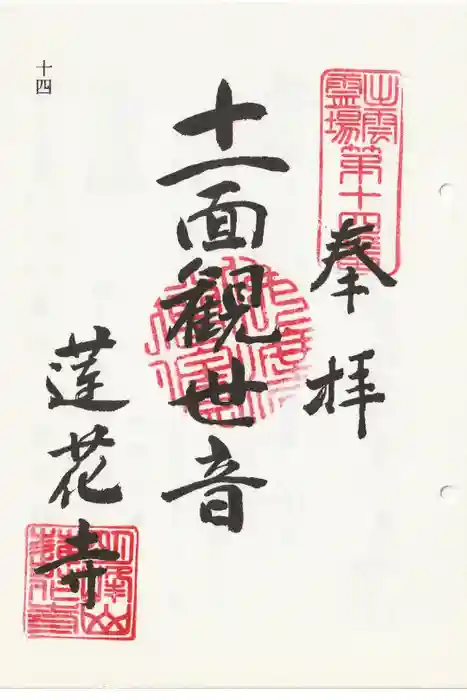 出雲
霊場
第十四番
奉拝
十一面観世音
蓮花寺
十四